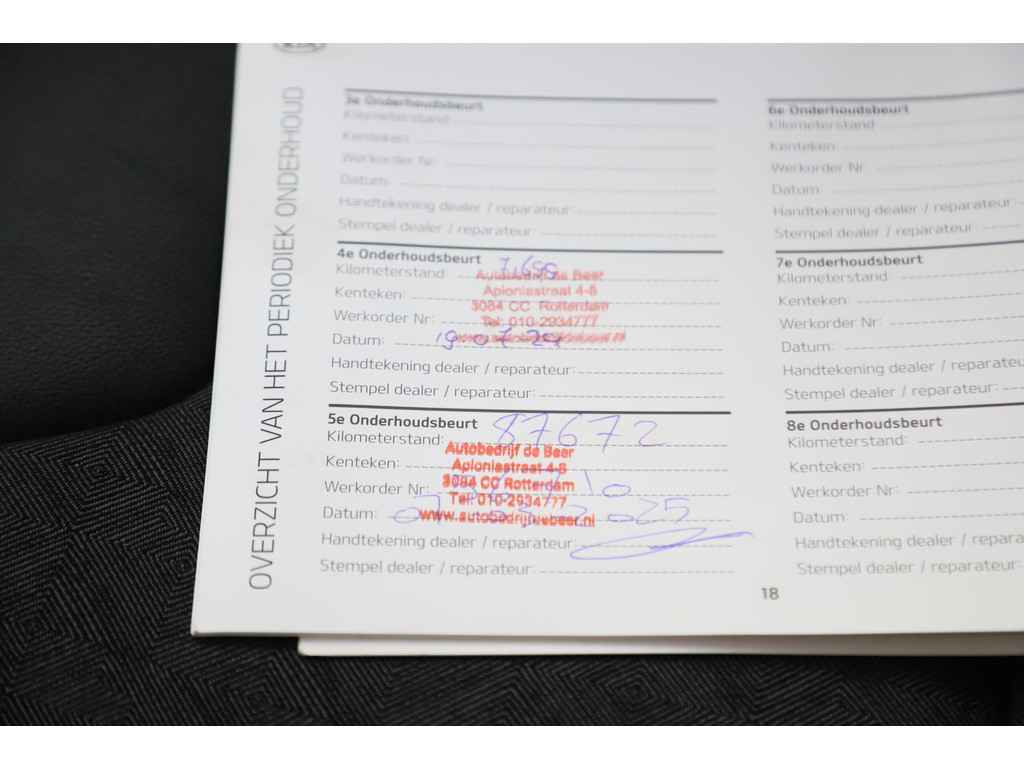 OVERZICHT VAN HET PERIODIEK ONDERHOUD
3e Onderhoudsbeurt
Kilometerstand
Kenteken:
Werkorder Nr:
Datum:
Handtekening dealer / reparateur:
Stempel dealer / reparateur:
4e Onderhoudsbeurt
Kilometerstand
Kenteken:
Werkorder Nr:
Datum:
Handtekening dealer / reparateur:
Stempel dealer / reparateur:
Autobedrijf de Beer
Aploniastraat 4-8
3084 CC Rotterdam
Tel: 010-2934777
5e Onderhoudsbeurt
Kilometerstand: 87672
Kenteken:
Werkorder Nr:
Datum:
Handtekening dealer / reparateur:
Stempel dealer / reparateur:
Autobedrijf de Beer
Aploniastraat 4-8
3084 CC Rotterdam
Tel: 010-2934777
www.autobedrijfdebeer.nl
6e Onderhoudsbeurt
Kilometerstand
Kenteken:
Werkorder Nr:
Datum:
Handtekening dealer / reparateur
Stempel dealer / reparateur
7e Onderhoudsbeurt
Kilometerstand
Kenteken:
Werkorder Nr:
Datum:
Handtekening dealer / reparateur
Stempel dealer / reparateur:
8e Onderhoudsbeurt
Kilometerstand:
Kenteken:
Werkorder Nr:
Datum:
Handtekening dealer / repara
Stempel dealer / reparateur
18